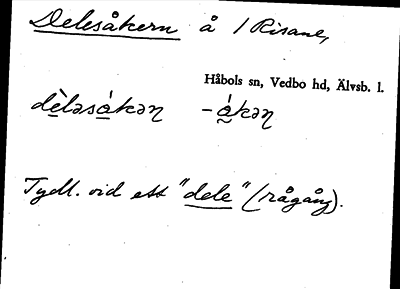 Delesåkern å 1 Risane,
Håbols sn, Vedbo hd, Älvsb. l.
dèləsåkəꞃ -åkəꞃ
Tydl. vid ett "dele" (rågång).